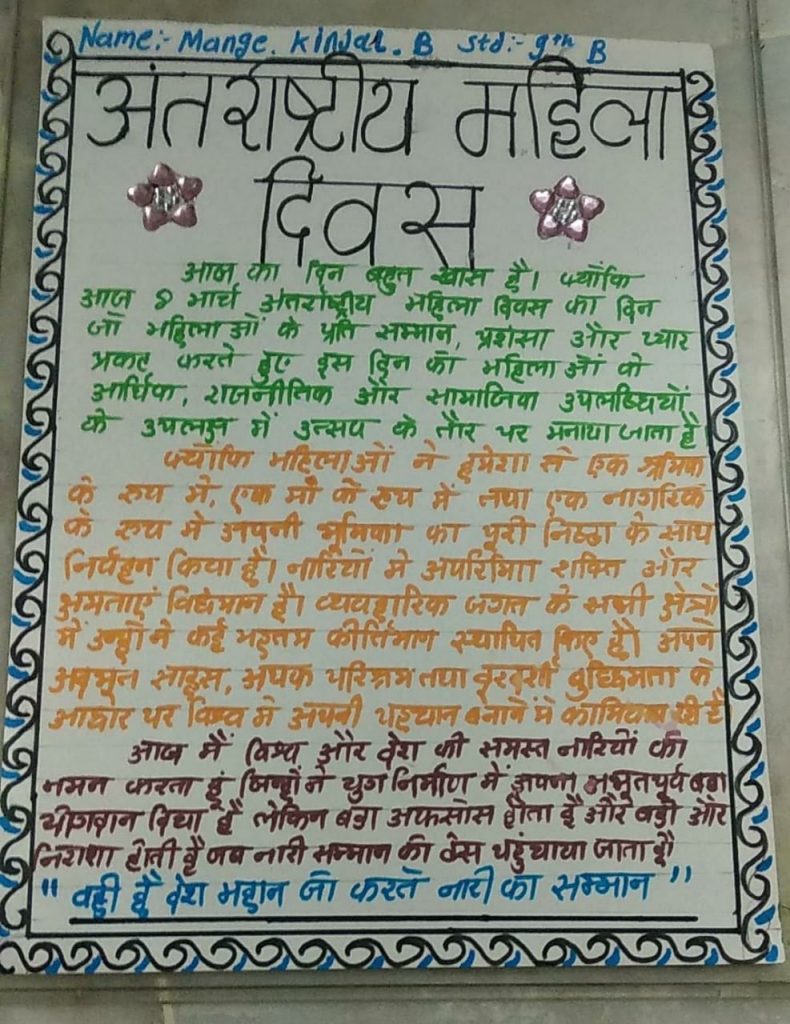 Name:- Mange. Kinjal. B Std:- 9th B
अंतर्राष्ट्रीय महिला
दिवस
आज का दिन बहुत खास है। क्योंकि
आज 8 मार्च अंतर्राष्ट्रीय महिला दिवस का दिन
जो महिलाओं के प्रति सम्मान, प्रशंसा और प्यार
प्रकट करते हुए इस दिन को महिलाओं के
आर्थिक, राजनीतिक और सामाजिक उपलब्धियों
के उपलक्ष में उत्सव के तौर पर मनाया जाता है
क्योंकि महिलाओं ने हमेशा से एक
के रूप में, एक माँ के रूप में तथा एक नागरिक
के रूप में अपनी भूमिका का पूरी निष्ठा के साथ
निर्वहन किया है। नारियों में शक्ति और
क्षमताएं विद्यमान है। व्यवहारिक जगत के सभी क्षेत्रों
में उन्होंने कई कीर्तिमान स्थापित किए है। अपने
अदभुत साहस, अथक परिश्रम तथा दूरदर्शी बुद्धिमता के
आधार पर विश्व में अपनी पहचान बनाने में रही है
आज मैं विश्व और देश की समस्त नारियों को
नमन करता हूं जिन्होंने युग निर्माण में अपना बड़ा
योगदान दिया है लेकिन बड़ा अफसोस होता है और बड़ी और
निराशा होती है जब नारी सम्मान को ठेस पहुंचाया जाता है।
" वही है देश महान जो करते नारी का सम्मान "